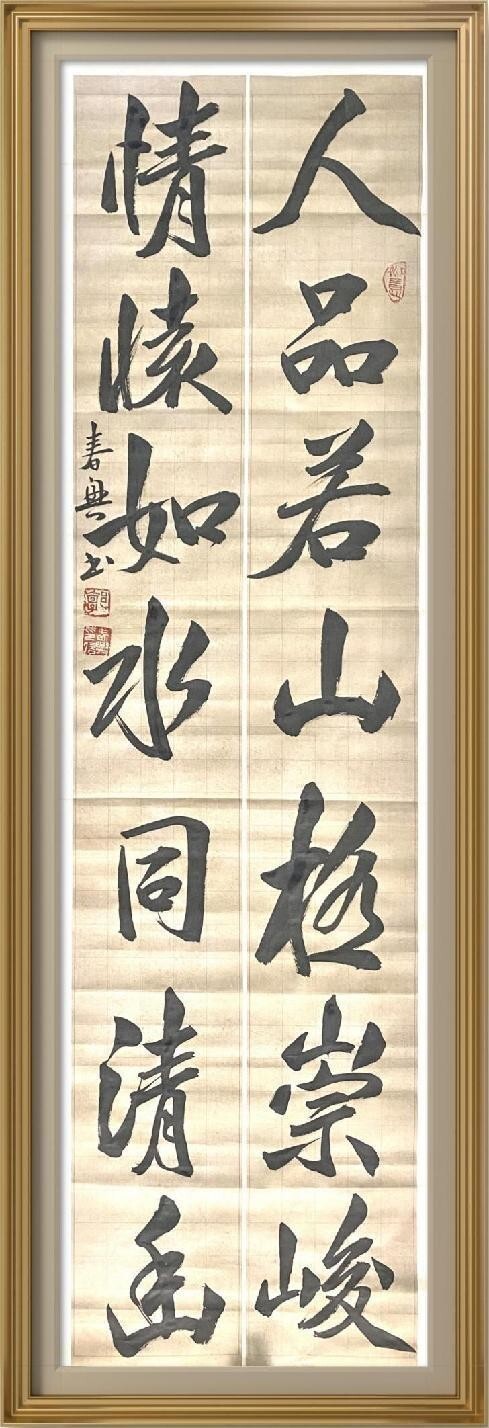 人品若山極崇峻
情懷如水同清幽
春興书